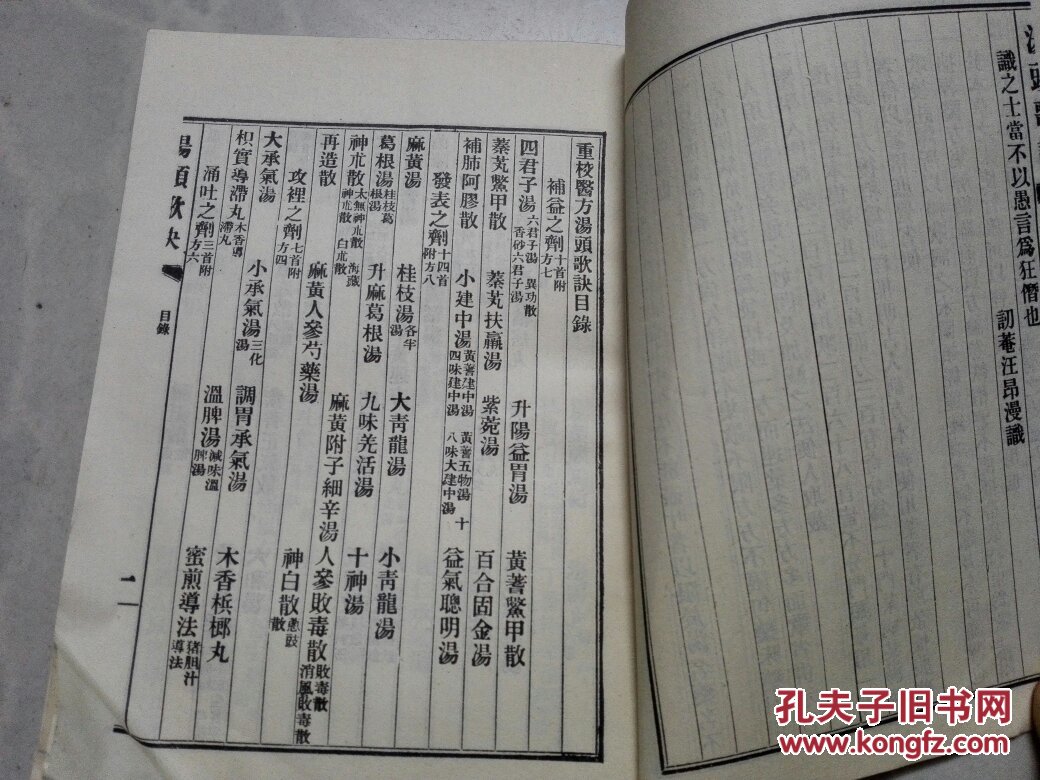 識之士當不以愚言爲狂僭也
訒菴汪昂漫識
重校醫方湯頭歌訣目錄
補益之劑十首附方七
四君子湯六君子湯 異功散 香砂六君子湯 升陽益胃湯 黃蓍鱉甲散
秦艽鱉甲散 秦艽扶羸湯 紫菀湯 百合固金湯
補肺阿膠散 小建中湯黃蓍建中湯 黃蓍五物湯 十四味建中湯 八味大建中湯 益氣聰明湯
發表之劑十四首附方八
麻黃湯 桂枝湯各半湯 大靑龍湯 小靑龍湯
葛根湯桂枝葛根湯 升麻葛根湯 九味羌活湯 十神湯
神朮散太無神朮散 海藏神朮散 白朮散 麻黃人參芍藥湯 麻黃附子細辛湯 人參敗毒散敗毒散 消風敗毒散
再造散 神白散葱豉散
攻裡之劑七首附方四
大承氣湯 小承氣湯三化湯 調胃承氣湯 木香檳榔丸
枳實導滯丸木香導滯丸 溫脾湯減味溫脾湯 蜜煎導法猪胆汁導法
涌吐之劑三首附方六
湯頭歌訣
目錄
二
孔夫子旧书网
www.kongfz.com